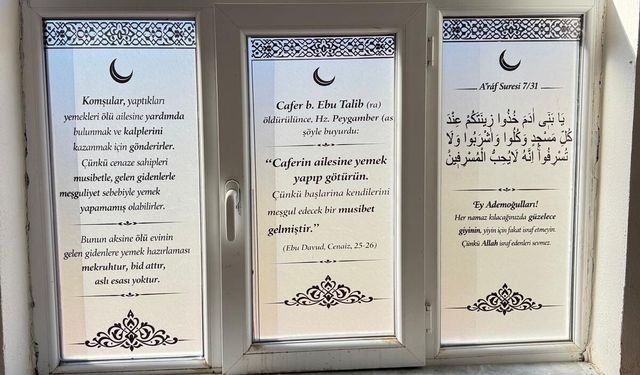 Komşular, yaptıkları
yemekleri ölü ailesine yardımda
bulunmak ve kalplerini
kazanmak için gönderirler.
Çünkü cenaze sahipleri
musibetle, gelen gidenlerle
meşguliyet sebebiyle yemek
yapamamış olabilirler.
Bunun aksine ölü evinin
gelen gidenlere yemek hazırlaması
mekruhtur, bid attır,
aslı esası yoktur.
Cafer b. Ebu Talib (ra)
öldürülünce, Hz. Peygamber (as
şöyle buyurdu:
“Caferin ailesine yemek
yapıp götürün.
Çünkü başlarına kendilerini
meşgul edecek bir musibet
gelmiştir.”
(Ebu Davud, Cenaiz, 25-26)
A'râf Suresi 7/31
يَا بَنٖٓي اٰدَمَ خُذُوا زٖينَتَكُمْ عِنْدَ
كُلِّ مَسْجِدٍ وَكُلُوا وَاشْرَبُوا وَلَا
تُسْرِفُواۚ اِنَّهُ لَا يُحِبُّ الْمُسْرِفٖينَ
'Ey Ademoğulları!
Her namaz kılacağınızda güzelece
giyinin, yiyin için fakat israf etmeyin.
Çünkü Allah israf edenleri sevmez.